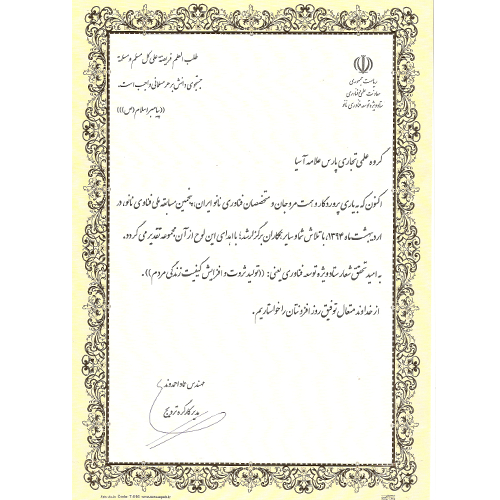 طلب العلم فریضة علی کل مسلم و مسلمة
جستجوی دانش بر هر مسلمانی واجب است.
((پیامبر اسلام (ص)))
ریاست جمهوری
معاونت علمی و فناوری
ستاد ویژه توسعه فناوری نانو
گروه علمی تجاری پارس علامه آسیا
اکنون که به یاری پروردگار و همت مروجان و متخصصان فناوری نانو ایران، پنجمین مسابقه ملی فناوری نانو، در
اردیبهشت ماه ۱۳۹۴، با تلاش شما و سایر همکاران برگزار شد؛ با اهدای این لوح از آن مجموعه تقدیر می گردد.
به امید تحقق شعار ستاد ویژه توسعه فناوری یعنی: ((تولید ثروت و افزایش کیفیت زندگی مردم)).
از خداوند متعال توفیق روز افزونتان را خواستاریم.
مهندس عماد احمدوند
دبیر کارگروه ترویج